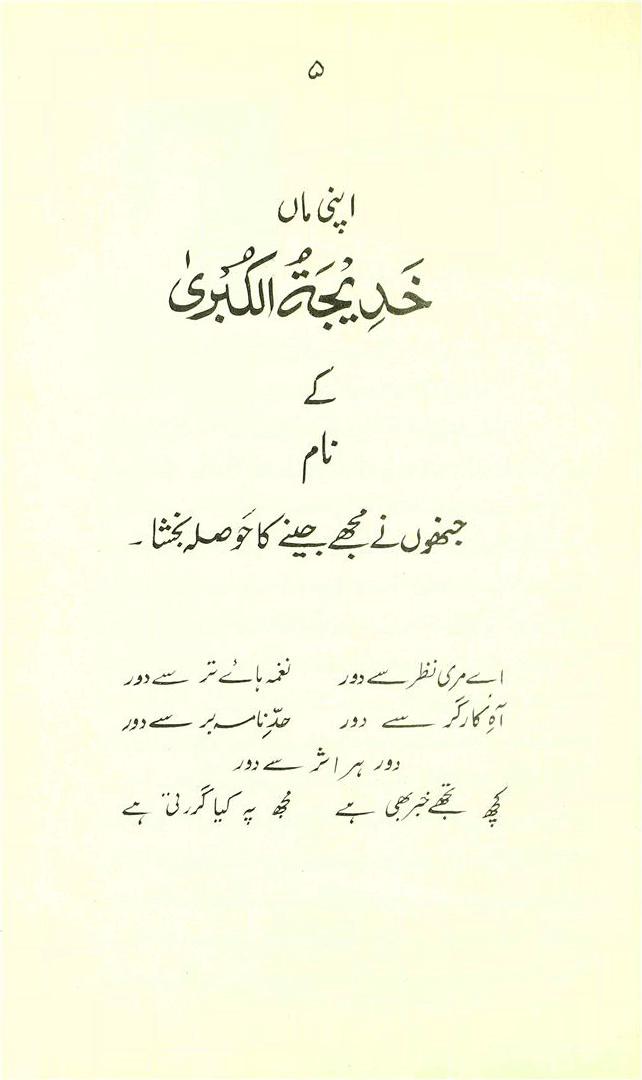 ۵
اپنی ماں
خَدِیْجَۃُ الکُبریٰ
کے
نام
جنھوں نے مجھے جینے کا حَوصلہ بخشا۔
اے مری نظر سے دور نغمہ ہائے تر سے دور
آہِ کارگر سے دور حدِّ نامہ بر سے دور
دور ہر اثر سے دور
کچھ تجھے خبر بھی ہے مجھ پہ کیا گزرتی ہے